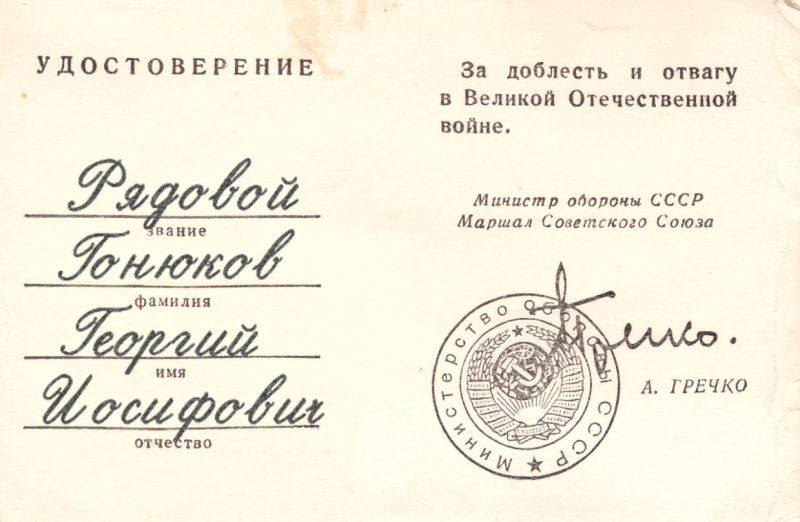 УДОСТОВЕРЕНИЕ
Рядовой
звание
Гонюков
фамилия
Георгий
имя
Иосифович
отчество
За доблесть и отвагу
в Великой Отечественной
войне.
Министр обороны СССР
Маршал Советского Союза
Министерство Обороны СССР
Гречко.
А. ГРЕЧКО